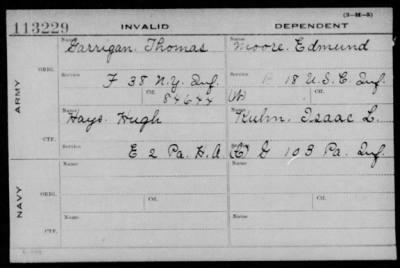 (3-M-3)
113229 INVALID DEPENDENT
Name: Name:
Garrigan, Thomas Moore, Edmund
ORIG. Service Service
F 38 N.Y. Inf. 18 U.S.C Inf.
Ctf. 84644 Ctf. (W)
ARMY
Name: Name:
Hays, Hugh Kuhn, Isaac L.
CTF. Service Service
E 2 Pa. H.A. G 103 Pa. Inf.
Name: Name:
ORIG. Service Service
Ctf. Ctf.
NAVY
Name: Name:
CTF. Service Service